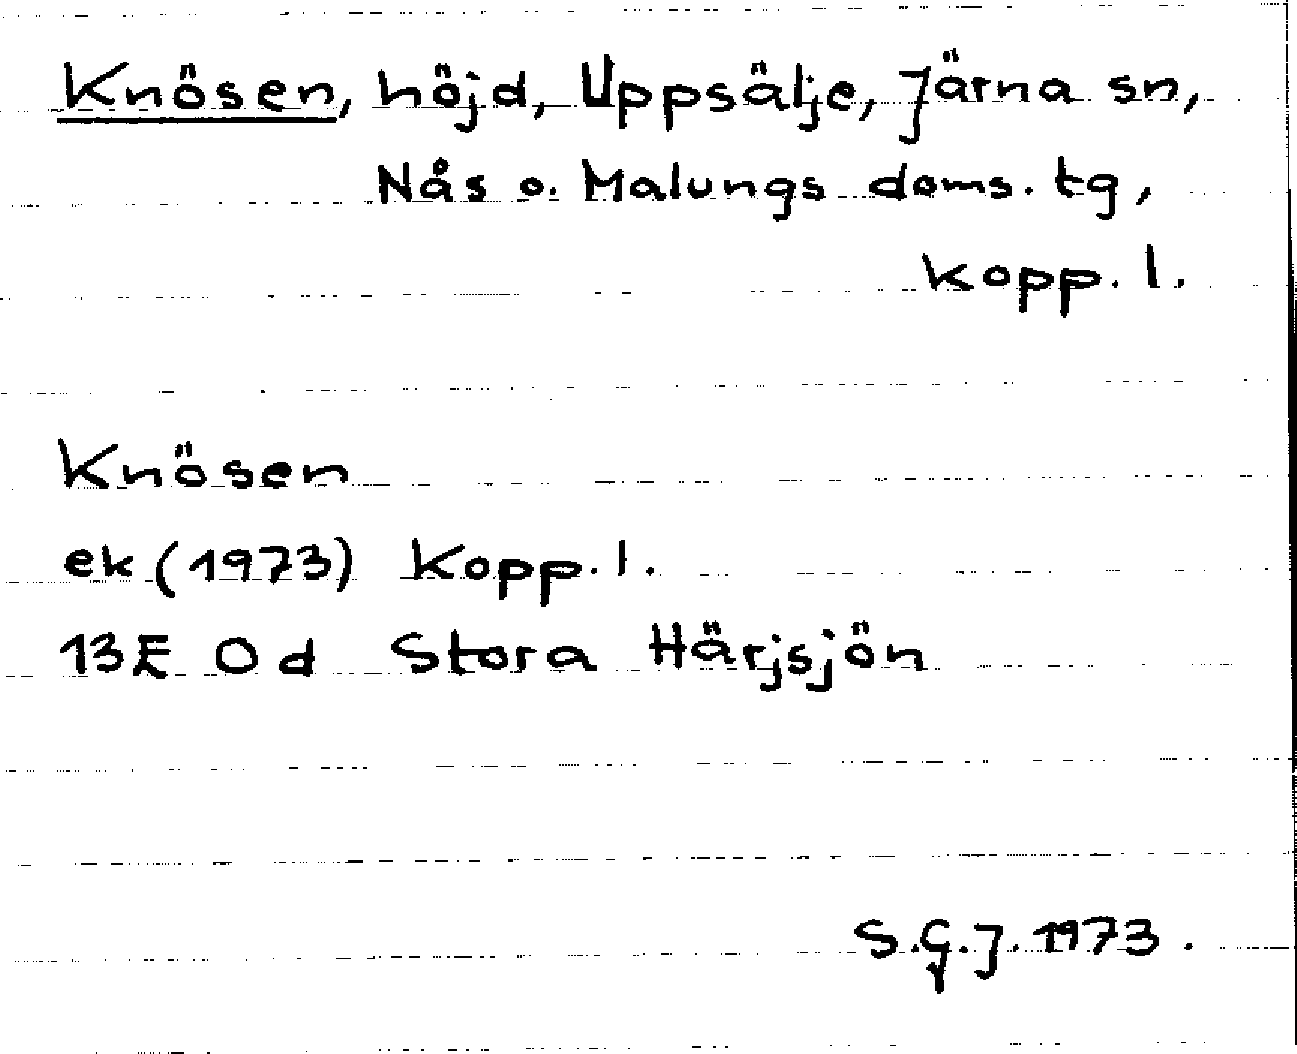 Knösen, höjd, Uppsälje, Järna sn,
Nås o. Malungs doms. tg,
Kopp. l.
Knösen
ek (1973) Kopp. l.
13E 0d Stora Härjsjön
S.G.J. 1973.